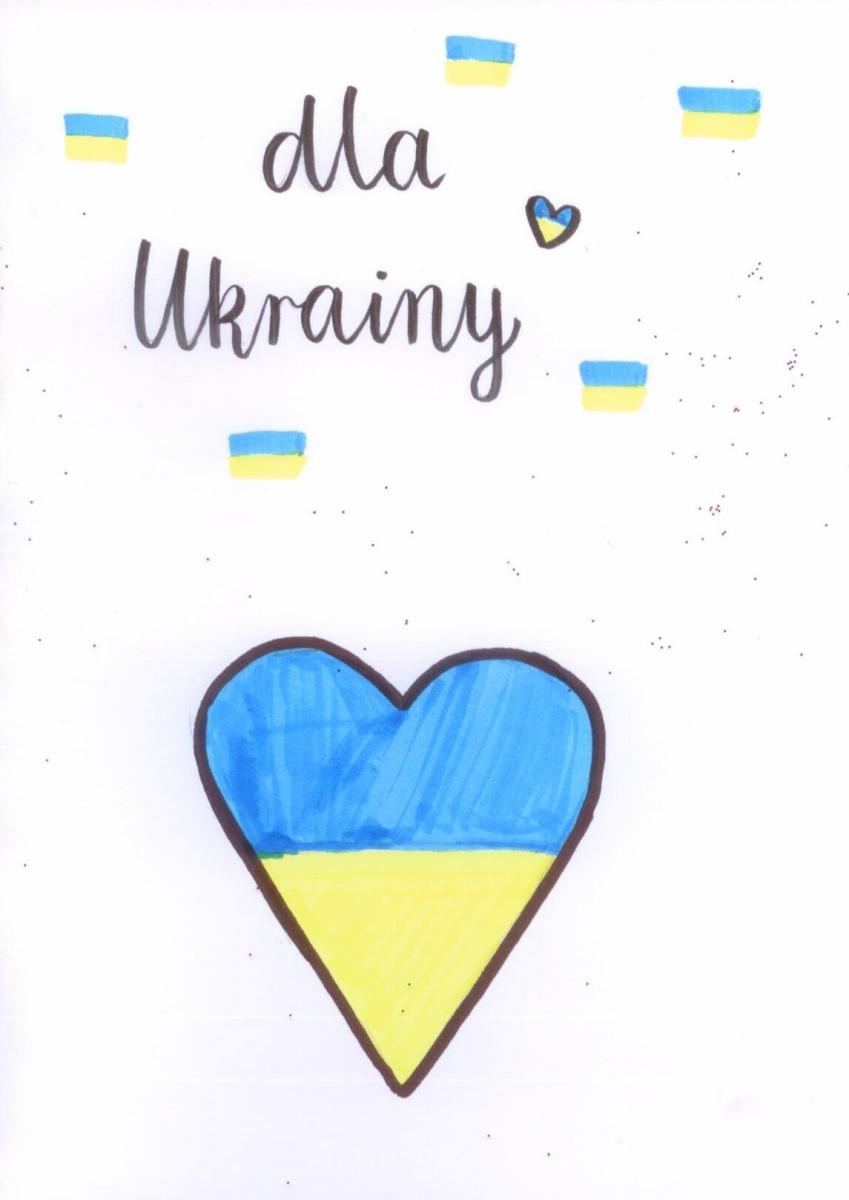 dla
Ukrainy